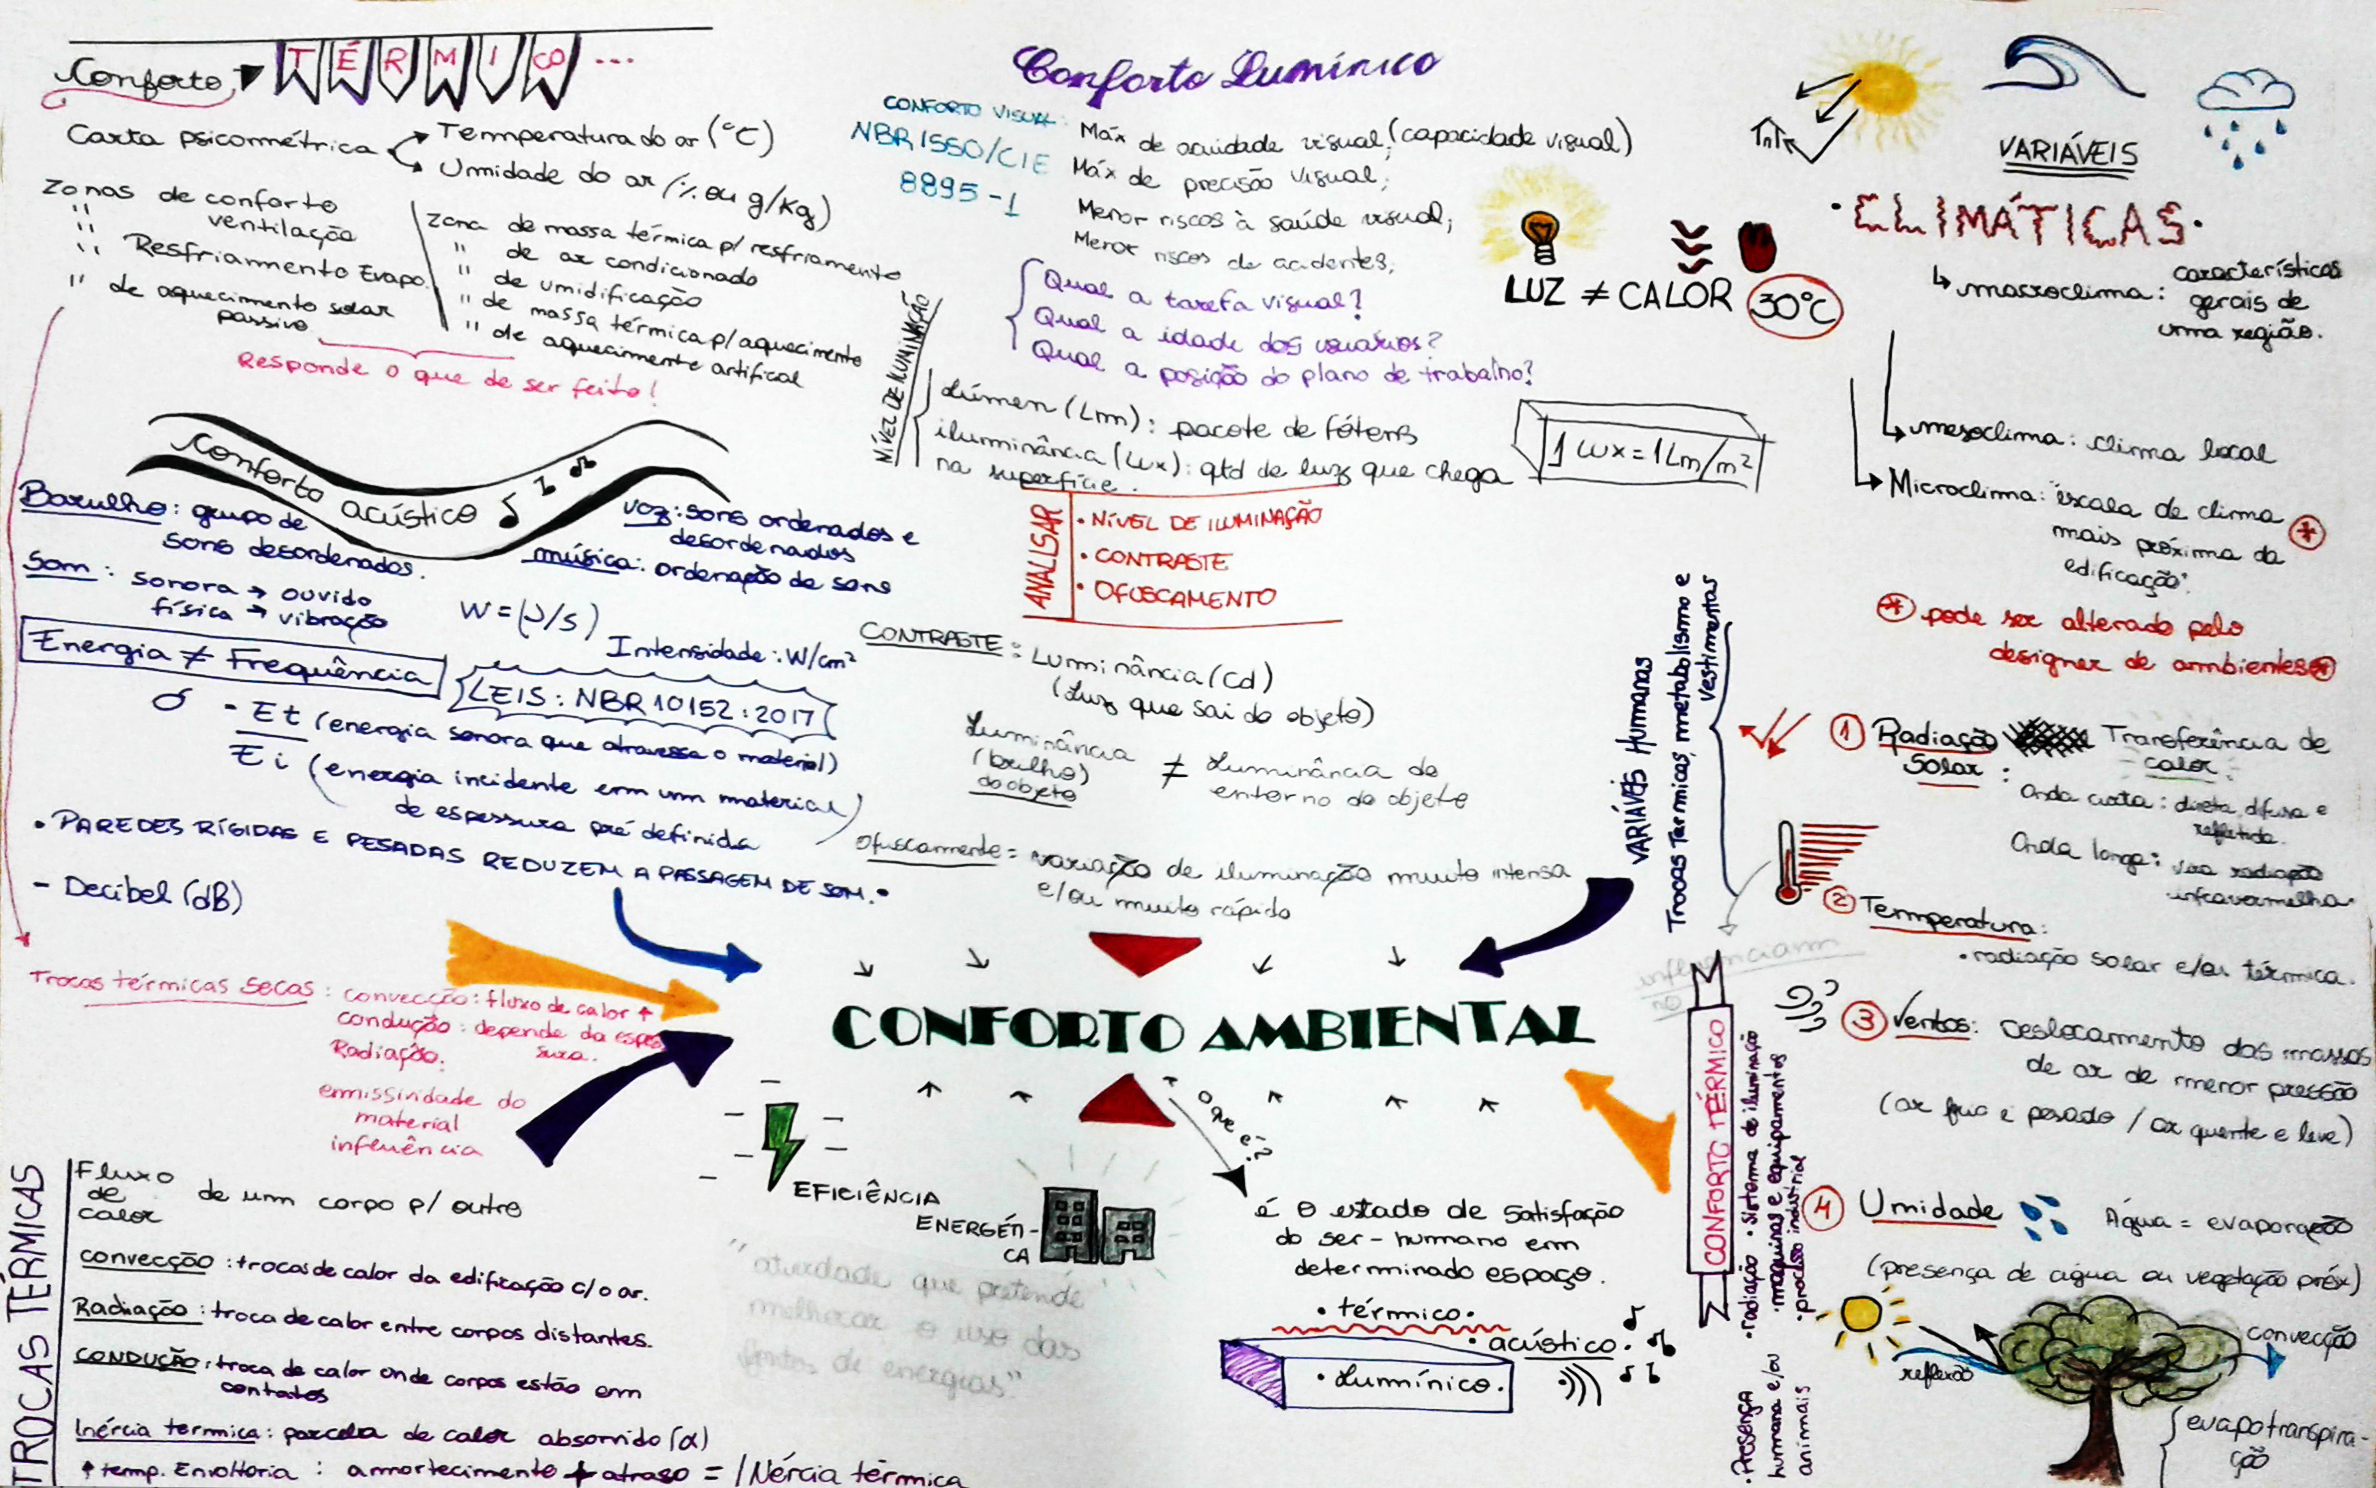 Conforto TÉRMICO ...
Carta psicométrica
Temperatura do ar (°C)
Umidade do ar (% ou g/Kg)
Zonas de conforto
" ventilação
" Resfriamento Evapo.
" de aquecimento solar
passivo
Zona de massa térmica p/ resfriamento
" de ar condicionado
" de umidificação
" de massa térmica p/ aquecimento
" de aquecimento artifical
Responde o que de ser feito!
Conforto acústico
Barulho: grupo de
sons desordenados.
Som: sonora → ouvido
física → vibração
voz: sons ordenados e
desordenados
música: ordenação de sons
W = (J/s)
Intensidade: W/cm²
Energia ≠ Frequência
LEIS: NBR 10152:2017
σ - Et (energia sonora que atravessa o material)
Ei (energia incidente em um material
de espessura pré definida)
• PAREDES RÍGIDAS E PESADAS REDUZEM A PASSAGEM DE SOM. •
- Decibel (dB)
Trocas térmicas secas: convecção: fluxo de calor ↑
condução: depende da espes
sura.
Radiação:
emissividade do
material
infuência
TROCAS TÉRMICAS
Fluxo
de
calor
de um corpo p/ outro
convecção: trocas de calor da edificação c/ o ar.
Radiação: troca de calor entre corpos distantes.
CONDUÇÃO: troca de calor onde corpos estão em
contatos
Inércia termica: parcela de calor absorvido (α)
↑ temp. Envoltoria: amortecimento + atraso = INércia térmica
Conforto Lumínico
CONFORTO VISUAL:
NBR 1550/CIE
8895-1
Máx de acuidade visual; (capacidade visual)
Máx de precisão visual;
Menor riscos à saúde visual;
Menor riscos de acidentes;
Qual a tarefa visual?
Qual a idade dos usuários?
Qual a posição do plano de trabalho?
LUZ ≠ CALOR 30°C
NÍVEL DE ILUMINAÇÃO
Lúmen (Lm): pacote de fótens
iluminância (Lux): qtd de luz que chega
na superfície.
1 Lux = 1 Lm/m²
ANALISAR
• NÍVEL DE ILUMINAÇÃO
• CONTRASTE
• OFUSCAMENTO
CONTRASTE: Luminância (cd)
(Luz que sai do objeto)
Luminância
(brilho)
do objeto
≠ Luminância do
entorno do objeto
Ofuscamento = variação de iluminação muito intensa
e/ou muito rápido
CONFORTO AMBIENTAL
EFICIÊNCIA
ENERGÉTI-
CA
"atividade que pretende
melhorar o uso das
fontes de energias".
o que é?
é o estado de satisfação
do ser-humano em
determinado espaço.
• térmico •
• acústico.
• Lumínico.
VARIÁVEIS Humanas
Trocas Térmicas, metabolismo e
vestimentas
influenciam
no
CONFORTO TÉRMICO
• Presença
humana e/ou
animais
• radiação • Sistema de iluminação
• maquinas e equipamentos
• processo industrial
VARIÁVEIS
• CLIMÁTICAS •
macroclima: características
gerais de
uma região.
mesoclima: clima local
Microclima: "escala de clima
mais próxima da
edificação" *
* pode ser alterado pelo
designer de ambientes *
1 Radiação Solar: Transferência de
calor.
Onda curta: direta, difusa e
refletida.
Onda longa: via radiação
infravermelha
2 Temperatura:
• radiação solar e/ou térmica.
3 Ventos: Deslocamento das massas
de ar de menor pressão
(ar frio e pesado / ar quente e leve)
4 Umidade Água = evaporação
(presença de água ou vegetação próx)
reflexão
convecção
evapotranspira-
ção